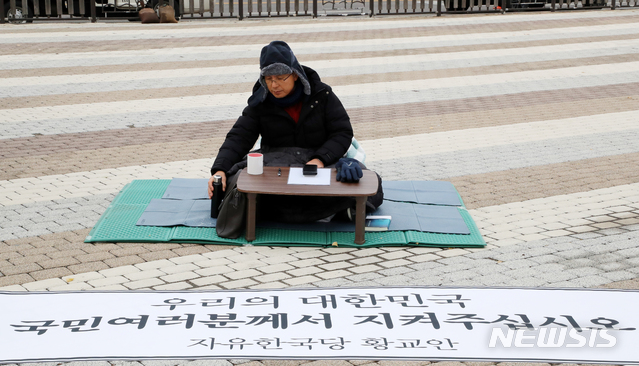 우리의 대한민국
국민여러분께서 지켜주십시오
자유한국당 황교안
NEWSIS